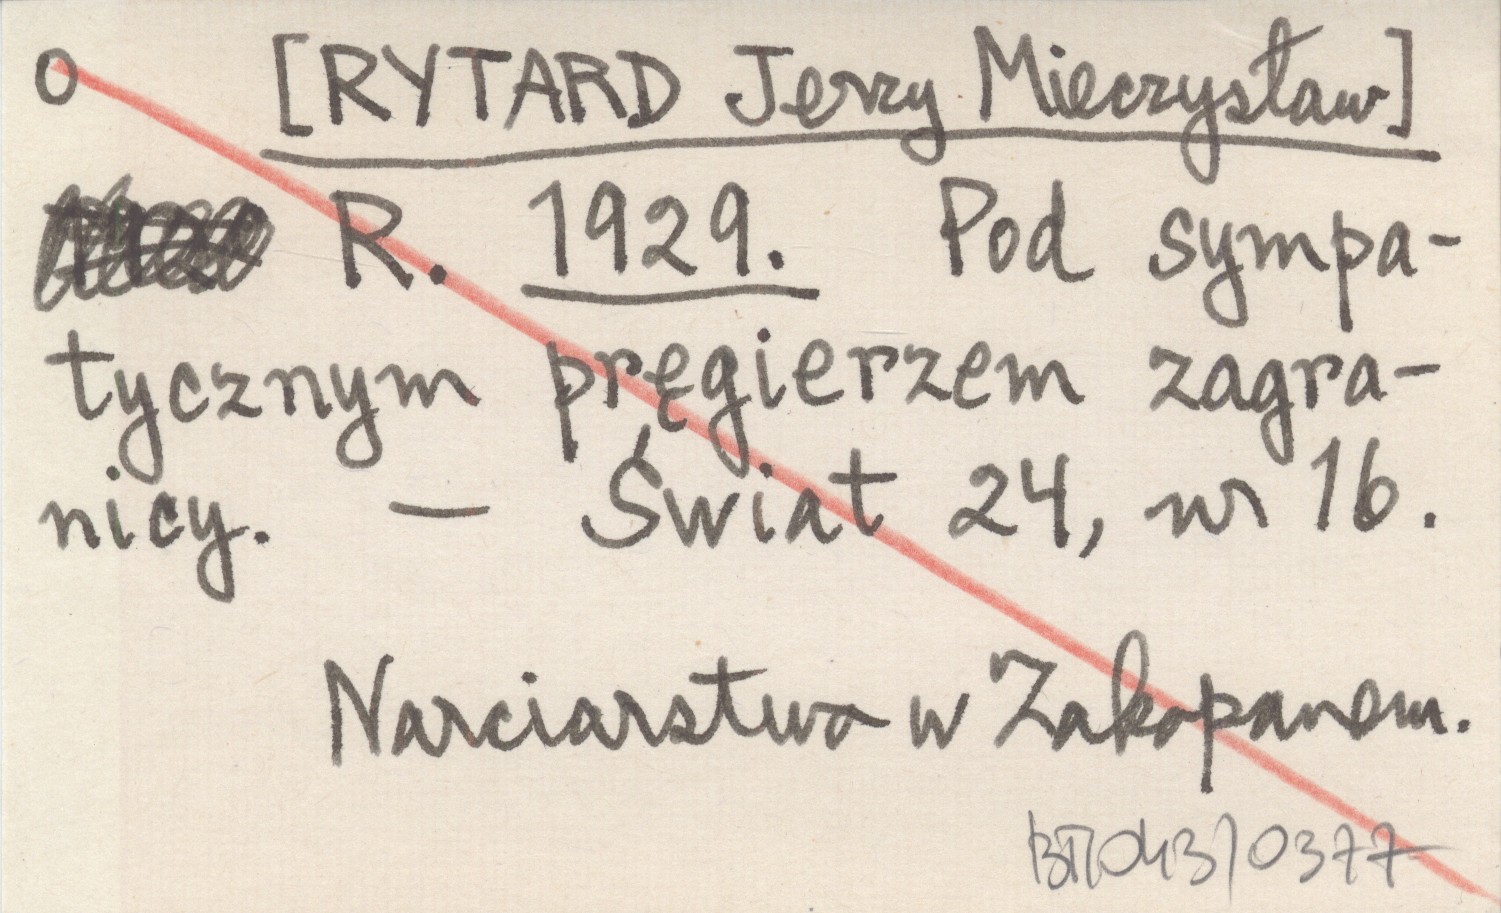 O [RYTARD Jerzy Mieczysław]
R. 1929. Pod sympa-
tycznym pręgierzem zagra-
nicy. — Świat 24, nr 16.
Narciarstwo w Zakopanem.
043/0377